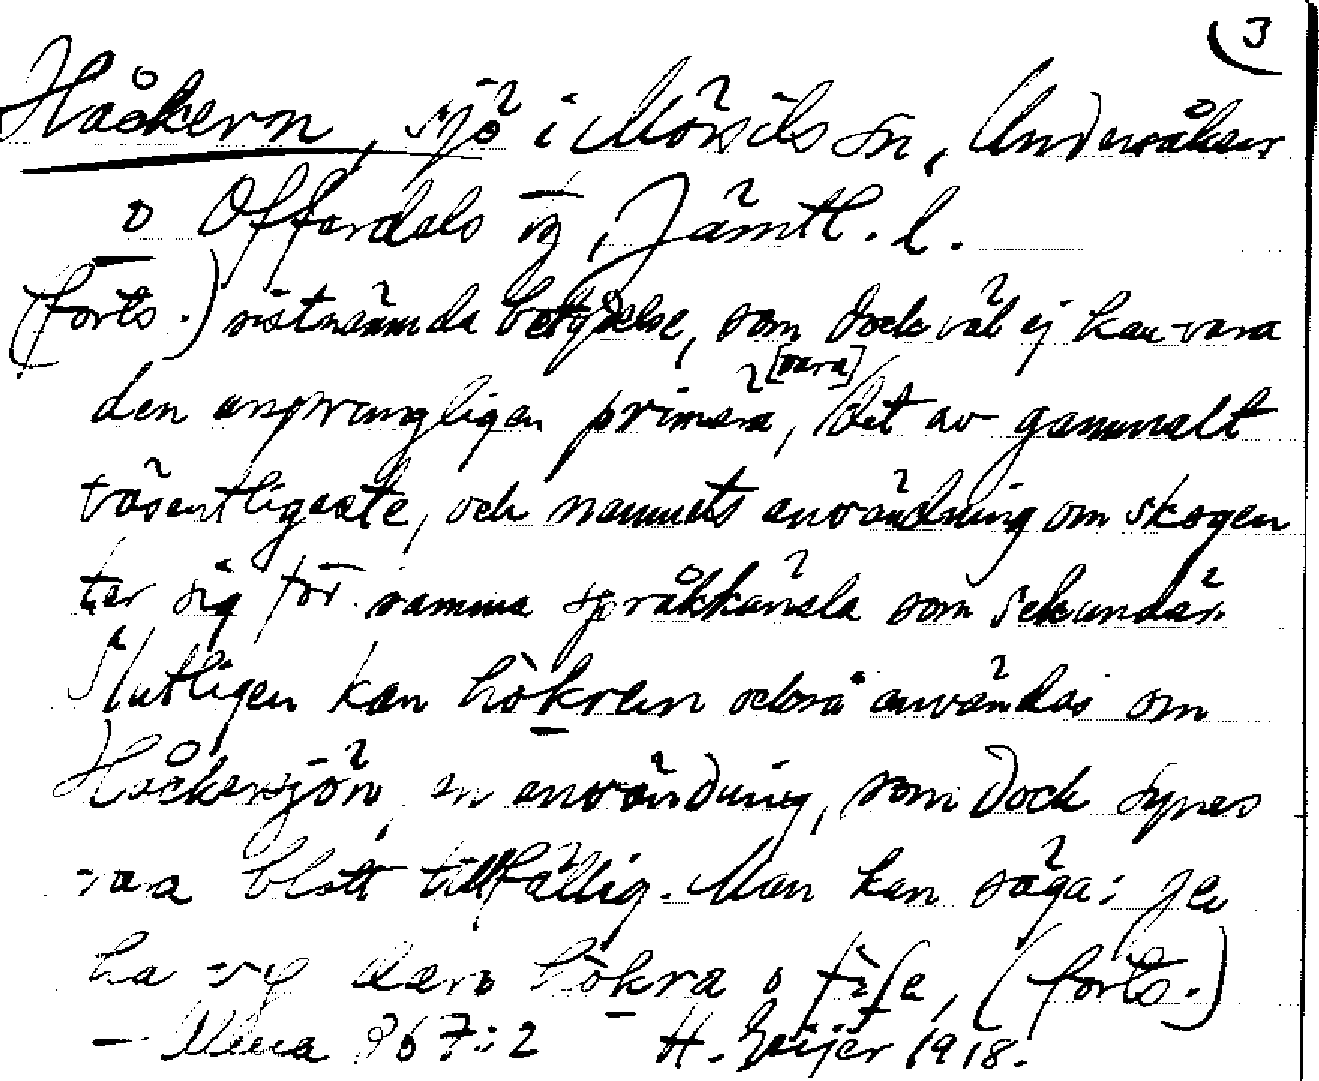 3
Håckern, sjö i Mörsils sn, Undersåkers
o Offerdals tg, Jämtl. l.
(forts.) sistnämda betydelse, som dock väl ej kan vara
[vara]
den ursprungligen primära, det av gammalt
väsentligaste, och namnets användning om skogen
ter sig för samma språkkänsla som sekundär.
Slutligen kan hòkren också användas om
Håckersjön, en användning, som dock synes
vara blott tillfällig. Man kan säga: je
ha vy dero hòkra o
(forts.)
– 867:2 H. Geijer 1918.